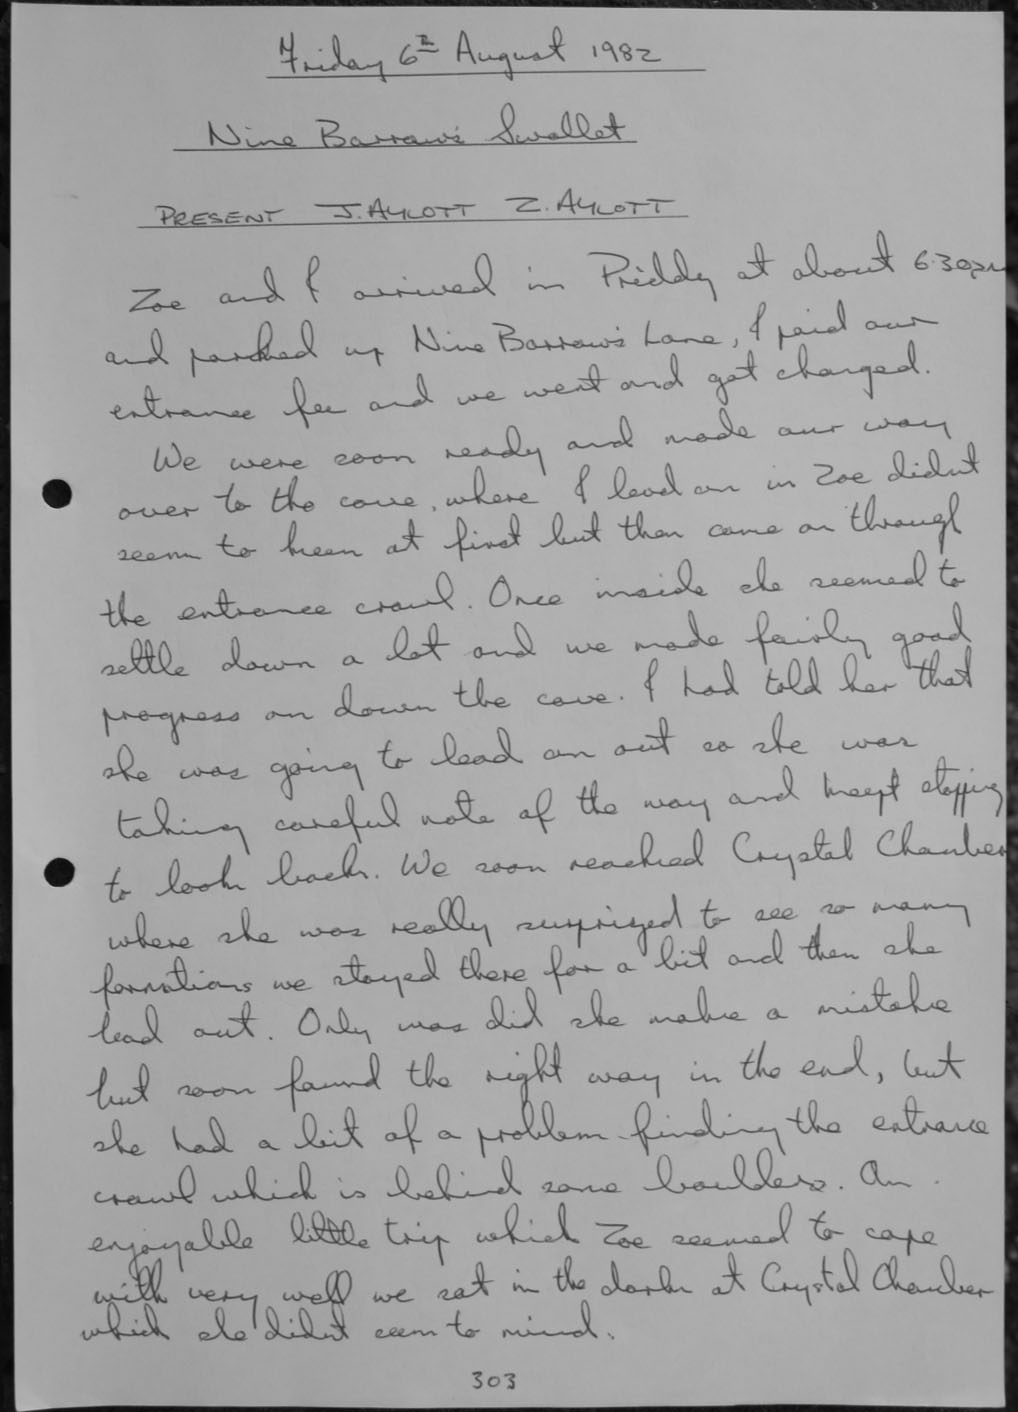 Friday 6th August 1982
Nine Barrows Swallet
PRESENT J. AYLOTT Z. AYLOTT
Zoe and I arrived in Priddy at about 6.30pm
and parked up Nine Barrows Lane, I paid our
entrance fee and we went and got changed.
We were soon ready and made our way
over to the cave, where I lead on in Zoe didnt
seem to keen at first but then came on through
the entrance crawl. Once inside she seemed to
settle down a lot and we made fairly good
progress on down the cave. I had told her that
she was going to lead on out so she was
taking careful note of the way and keept stopping
to look back. We soon reached Crystal Chamber
where she was really surprized to see so many
formations we stayed there for a bit and then she
lead out. Only was did she make a mistake
but soon found the right way in the end, but
she had a bit of a problem finding the entrance
crawl which is behind some boulders. An
enjoyable little trip which Zoe seemed to cope
with very well we sat in the dark at Crystal Chamber
which she didnt seem to mind.
303